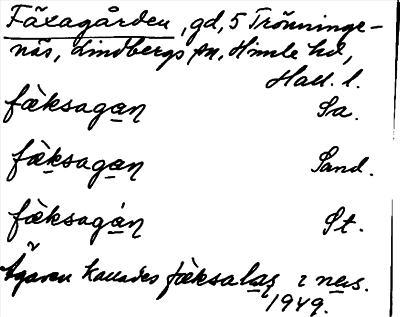 Fäxagården, gd, 5 Trönninge-
näs, Lindbergs sn, Himle hd,
Hall. l.
fæksagan Sa.
fæksagan Sand.
fæksagan St.
Ägaren kallades fæksalas i
1949.